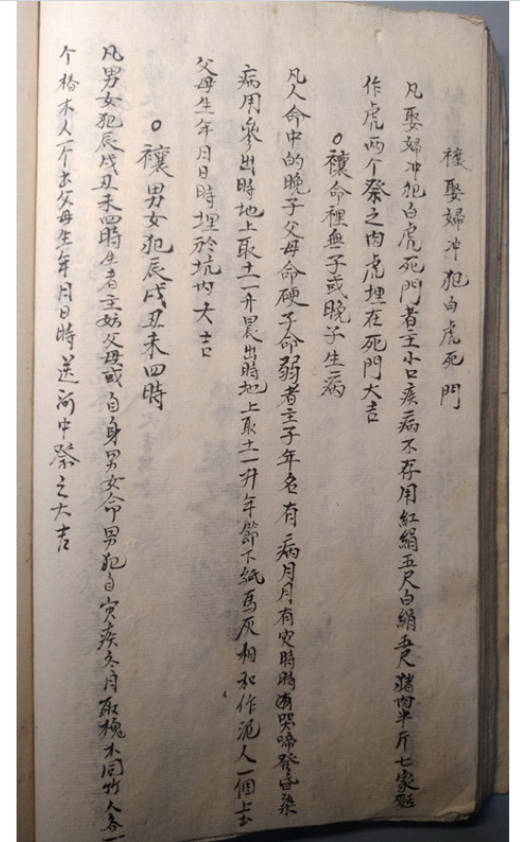 禳娶婦冲犯白虎死門
凡娶婦冲犯白虎死門者主小口疾病不存用紅絹五尺白絹五尺猪肉半斤七家麵
作虎两个祭之肉虎埋在死門大吉
○禳命裡無子或晚子生病
凡人命中的晚子父母命硬子命弱者主子年年有病月月有灾時時有哭啼發昏染
病用參出時地上取土一升晨出時地上取土一升年節下紙馬灰相和作泥人一個上書
父母生年月日時埋於坑内大吉
○禳男女犯辰戌丑未四時
凡男女犯辰戌丑未四時生者主妨父母或自身男女命男犯自灾疾冬月取槐木同竹人各一
个椿木人一个書父母生年月日時送河中祭之大吉